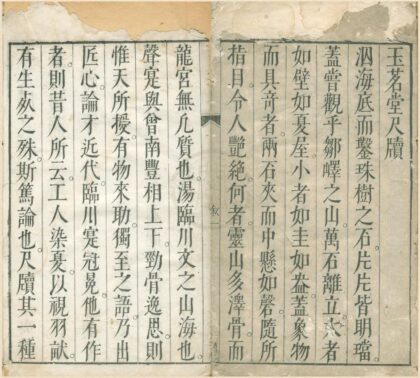 玉茗堂尺牘
泅海底而鑿珠樹之石片片皆明璫
蓋嘗觀乎鄒嶧之山萬石離立大者
如壁如夏屋小者如圭如盎蓋象物
而具奇者兩石夾而中懸如磬隨所
指目令人艷絕何者靈山多澤骨而
敘一
龍宮無凡質也湯臨川文之山海也
聲寔與曾南豐相上下勁骨逸思則
惟天所授有物來助獨至之語乃出
匠心論才近代臨川寔冠冕他有作
者則昔人所云工人染夏以視羽畎
有生死之殊斯篤論也尺牘其一種